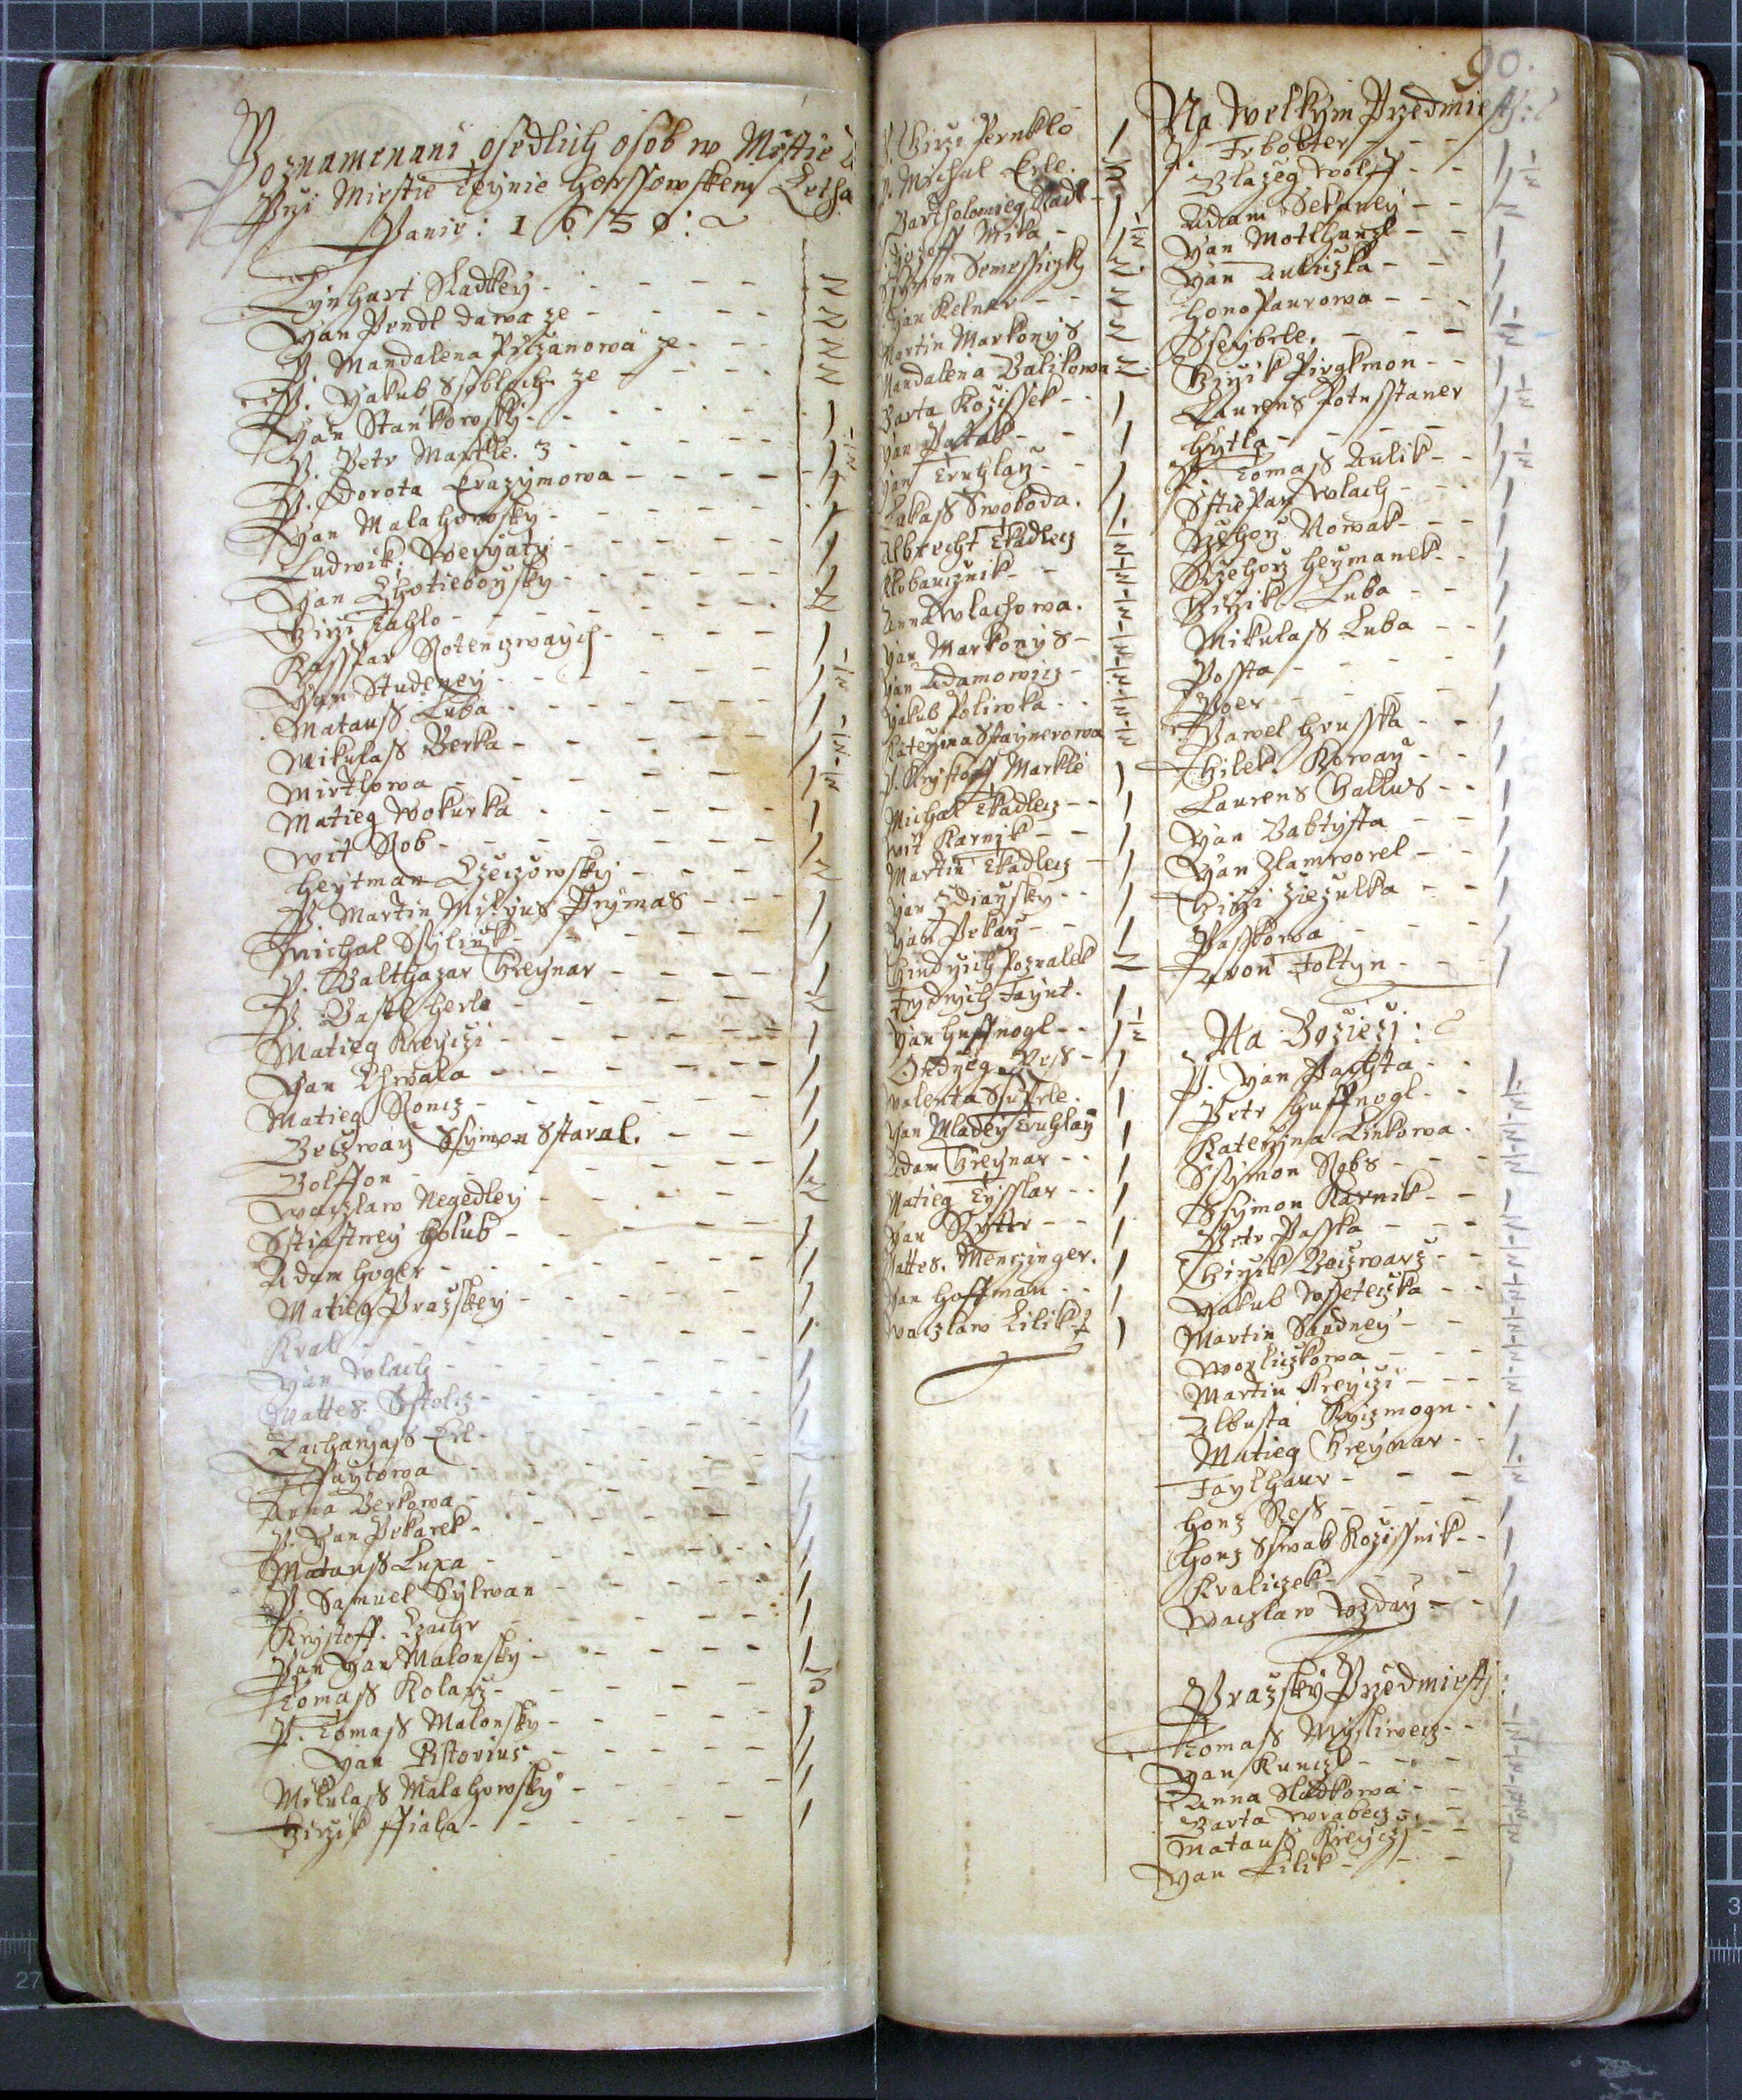 Poznamenani osedlich osob w Miestie
Przi Miestie Teynie Horssowskem Letha
Panie: 1650:
Lynhart Sladkey
Yan Prndl dawa ze
P. Mandalena Pilzanowa ze
P. Yakub Ssobloch ze
Yan Stankowsky
P. Petr Markle. 3
P. Dorota Erazymowa
Yan Malahowsky
Ludwik Weryaty
Yan Chotieborsky
Girzi Tachlo
Kasspar Rotenczwaych
Yan Studeney
Matauss Luba
Mikulass Berka
Mirtlowa
Matieg Wokurka
Wit Rob
Heytman Czeczowsky
P. Martin Milyus Prymas
Michal Ssylink
P. Balthazar Greynar
P. Bastl Herle
Matieg Kreyczi
Yan Chwala
Matieg Koncz
Beczwarz Ssymon Sstaral.
Bolffon
Waczlaw Negedley
Sstiastney Holub
Adam Hoger
Matieg Prazskey
Kral
Yan Wlach
Mattes Sstolcz
Zacharyass Erl
Paytowa
Anna Berkowa
P. Yan Pekarek
Matauss Luxa
P. Samuel Sylwan
Krystoff Czachr
Pan Yan Malonsky
Tomass Kolarz
P. Tomass Malonsky
Yan Pistorius
Mikulass Malahowsky
Girzik Ffiala
P. Girzi Pernklo
P. Michal Erle.
Bartholomieg Stadl
Jozeff Mika
Symon
Yan Kelner
Martin Markonys
Mandalena Balikowa
Barta Kozissek
Yan Patak
Yan Truhlarz
Lukass Swoboda.
Albrecht Tkadlecz
Klobaucznik
Anna Wlachowa.
Yan Markonys
Yan Adamowicz
Yakub Poliwka
Katerzina Sstaynerowa
P. Krystoff Markle
Michal Tkadlecz
Wit Karnik
Martin Tkadlecz
Yan Zdiarsky
Yan Pekarz
Gindrzich Pozralek
Frydrych Faynt.
Yan Huffnogl
Ondrzeg Pess
Valenta Ssusrle.
Yan Mladey Truhlarz
Adam Greynar
Matieg Teysslar
Yan Rytter
Mattes Menczinger.
Yan Hoffman
Waczlaw Cilik
90.
Na Welkym Przedmiesty:
P. Ferbekter
Blazeg Wolff
Adam Sekaney
Yan Motlhanzl
Yan Auliczka
Hono Paurowa
Sseyberle
Girzik Pirgkmon
Laurens Potnsstaner
Hytla
P. Tomass Aulik
Sstiepan Wlach
Rzehorz Nowak
Rzehorz Heymanek
Girzik Luba
Mikulass Luba
Possta
Poer
Pawel Hrusska
Gilek Kowarz
Laurens Gallus
Yan Babtysta
Yan Zlamworel
Girzi Ziezulka
Passkowa
Foltyn
Na Boziezj:
P. Yan Pachta
Petr Huffnogl
Katerzina Linkowa
Ssymon Robs
Ssymon Karnik
Petr Passka
Girzik Beczwarz
Yakub Wsseteczka
Martin Saudney
Worliczkowa
Martin Kreyczi
Albusta
Matieg Greynar
Faylhaur
Honz Ress
Honz Sswab Kozissnik
Kraliczek
Waczlaw Wzday
Prazsky Przedmiestj:
Tomass Mysliwecz
Yan Kunczl
Anna Sladkowa
Barta Wrabecz
Matauss Kreyczj
Yan Cilik